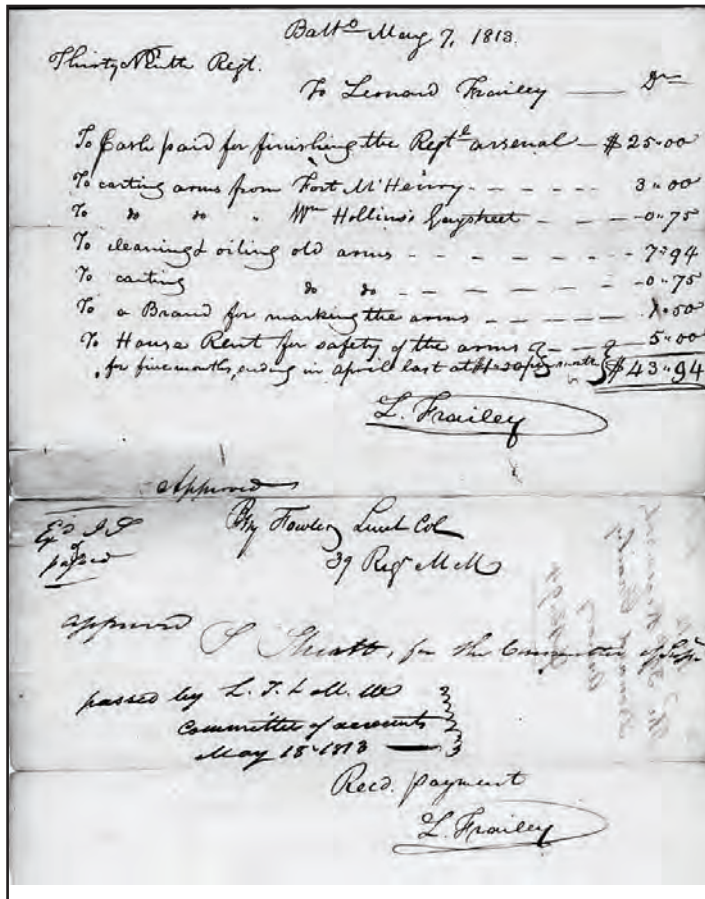 Balto May 7, 1813.
Thirty Ninth Regt.
To Leonard Frailey — Dr
To Cash paid for finishing the Regtl arsenal — $25.00
To carting arms from Fort McHenry - - - - - 3.00
To do do " Wm Hollins's Gaystreet - - - -0.75
To cleaning & oiling old arms - - - - - - - 7.94
To carting do do - - - - - - -0.75
To a Brand for marking the arms - - - - - 1.50
To House Rent for safety of the arms } - - } 5.00
for five months, ending in april last at $1.00 per month } $43.94
L. Frailey
Approved
Exd
passed
By Fowler Lieut Col
39 Regt M M
approved
S Sterett, for the Committee of Sups
passed by L. T. & M. M
Committee of accounts
May 18. 1813 —
Recd. payment
L. Frailey